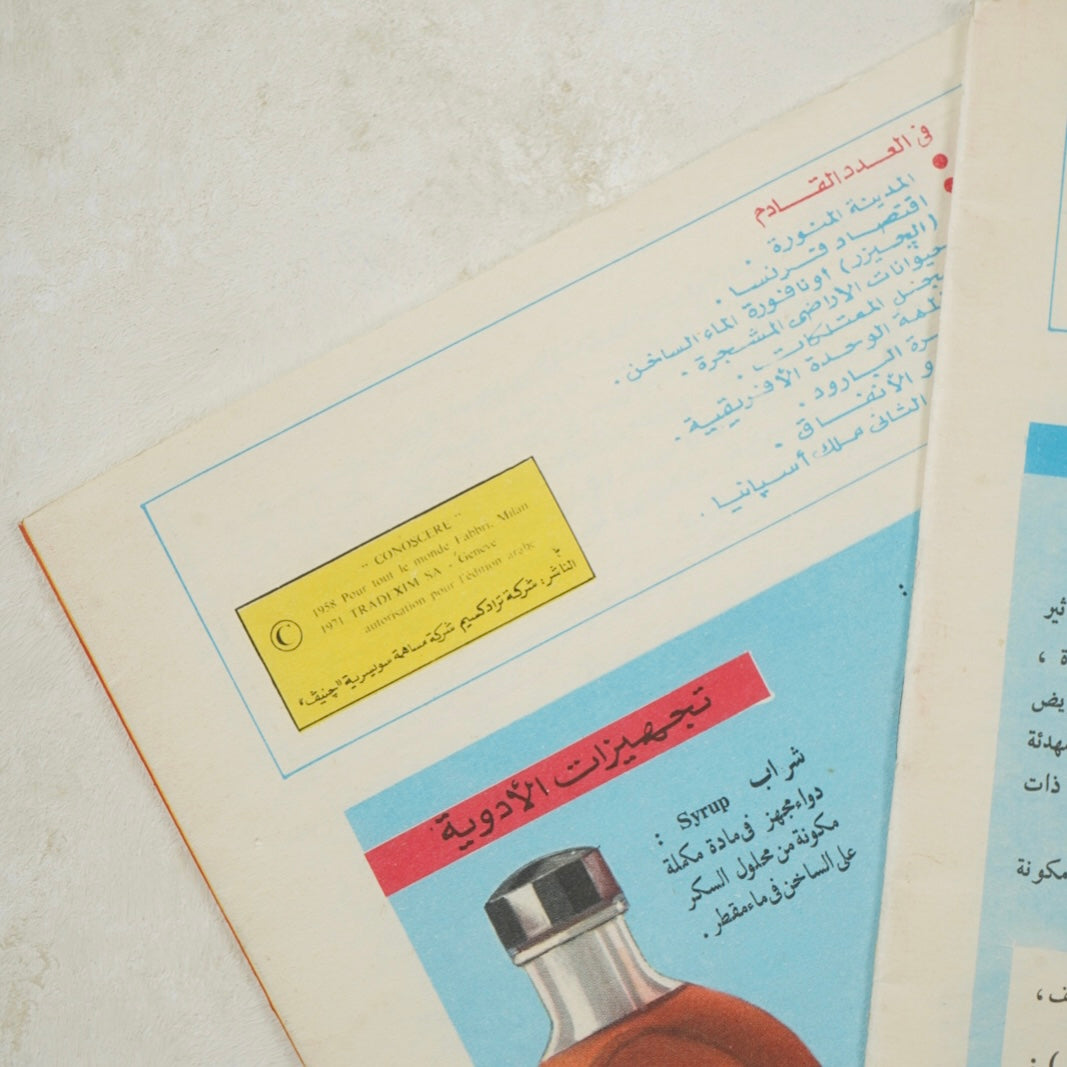 فى العدد القادم
المدينة المنورة .
اقتصاد فرنسا .
(الچيزر) أو نافورة الماء الساخن .
حيوانات الأراضى المشجرة .
المعتلكات .
الوحدة الأفريقية .
البارود .
و الأنفاق .
الثانى ملك أسبانيا .
" CONOSCERE "
1958 Pour tout le monde Fabbri, Milan
1971 TRADEXIM SA - Genève
autorisation pour l'édition arabe
الناشر: شركة ترادكسيم شركة مساهمة سويسرية "چنيف"
©
تجهيزات الأدوية
شراب Syrup :
دواء مجهز فى مادة مكملة
مكونة من محلول السكر
على الساخن فى ماء مقطر .
ذات